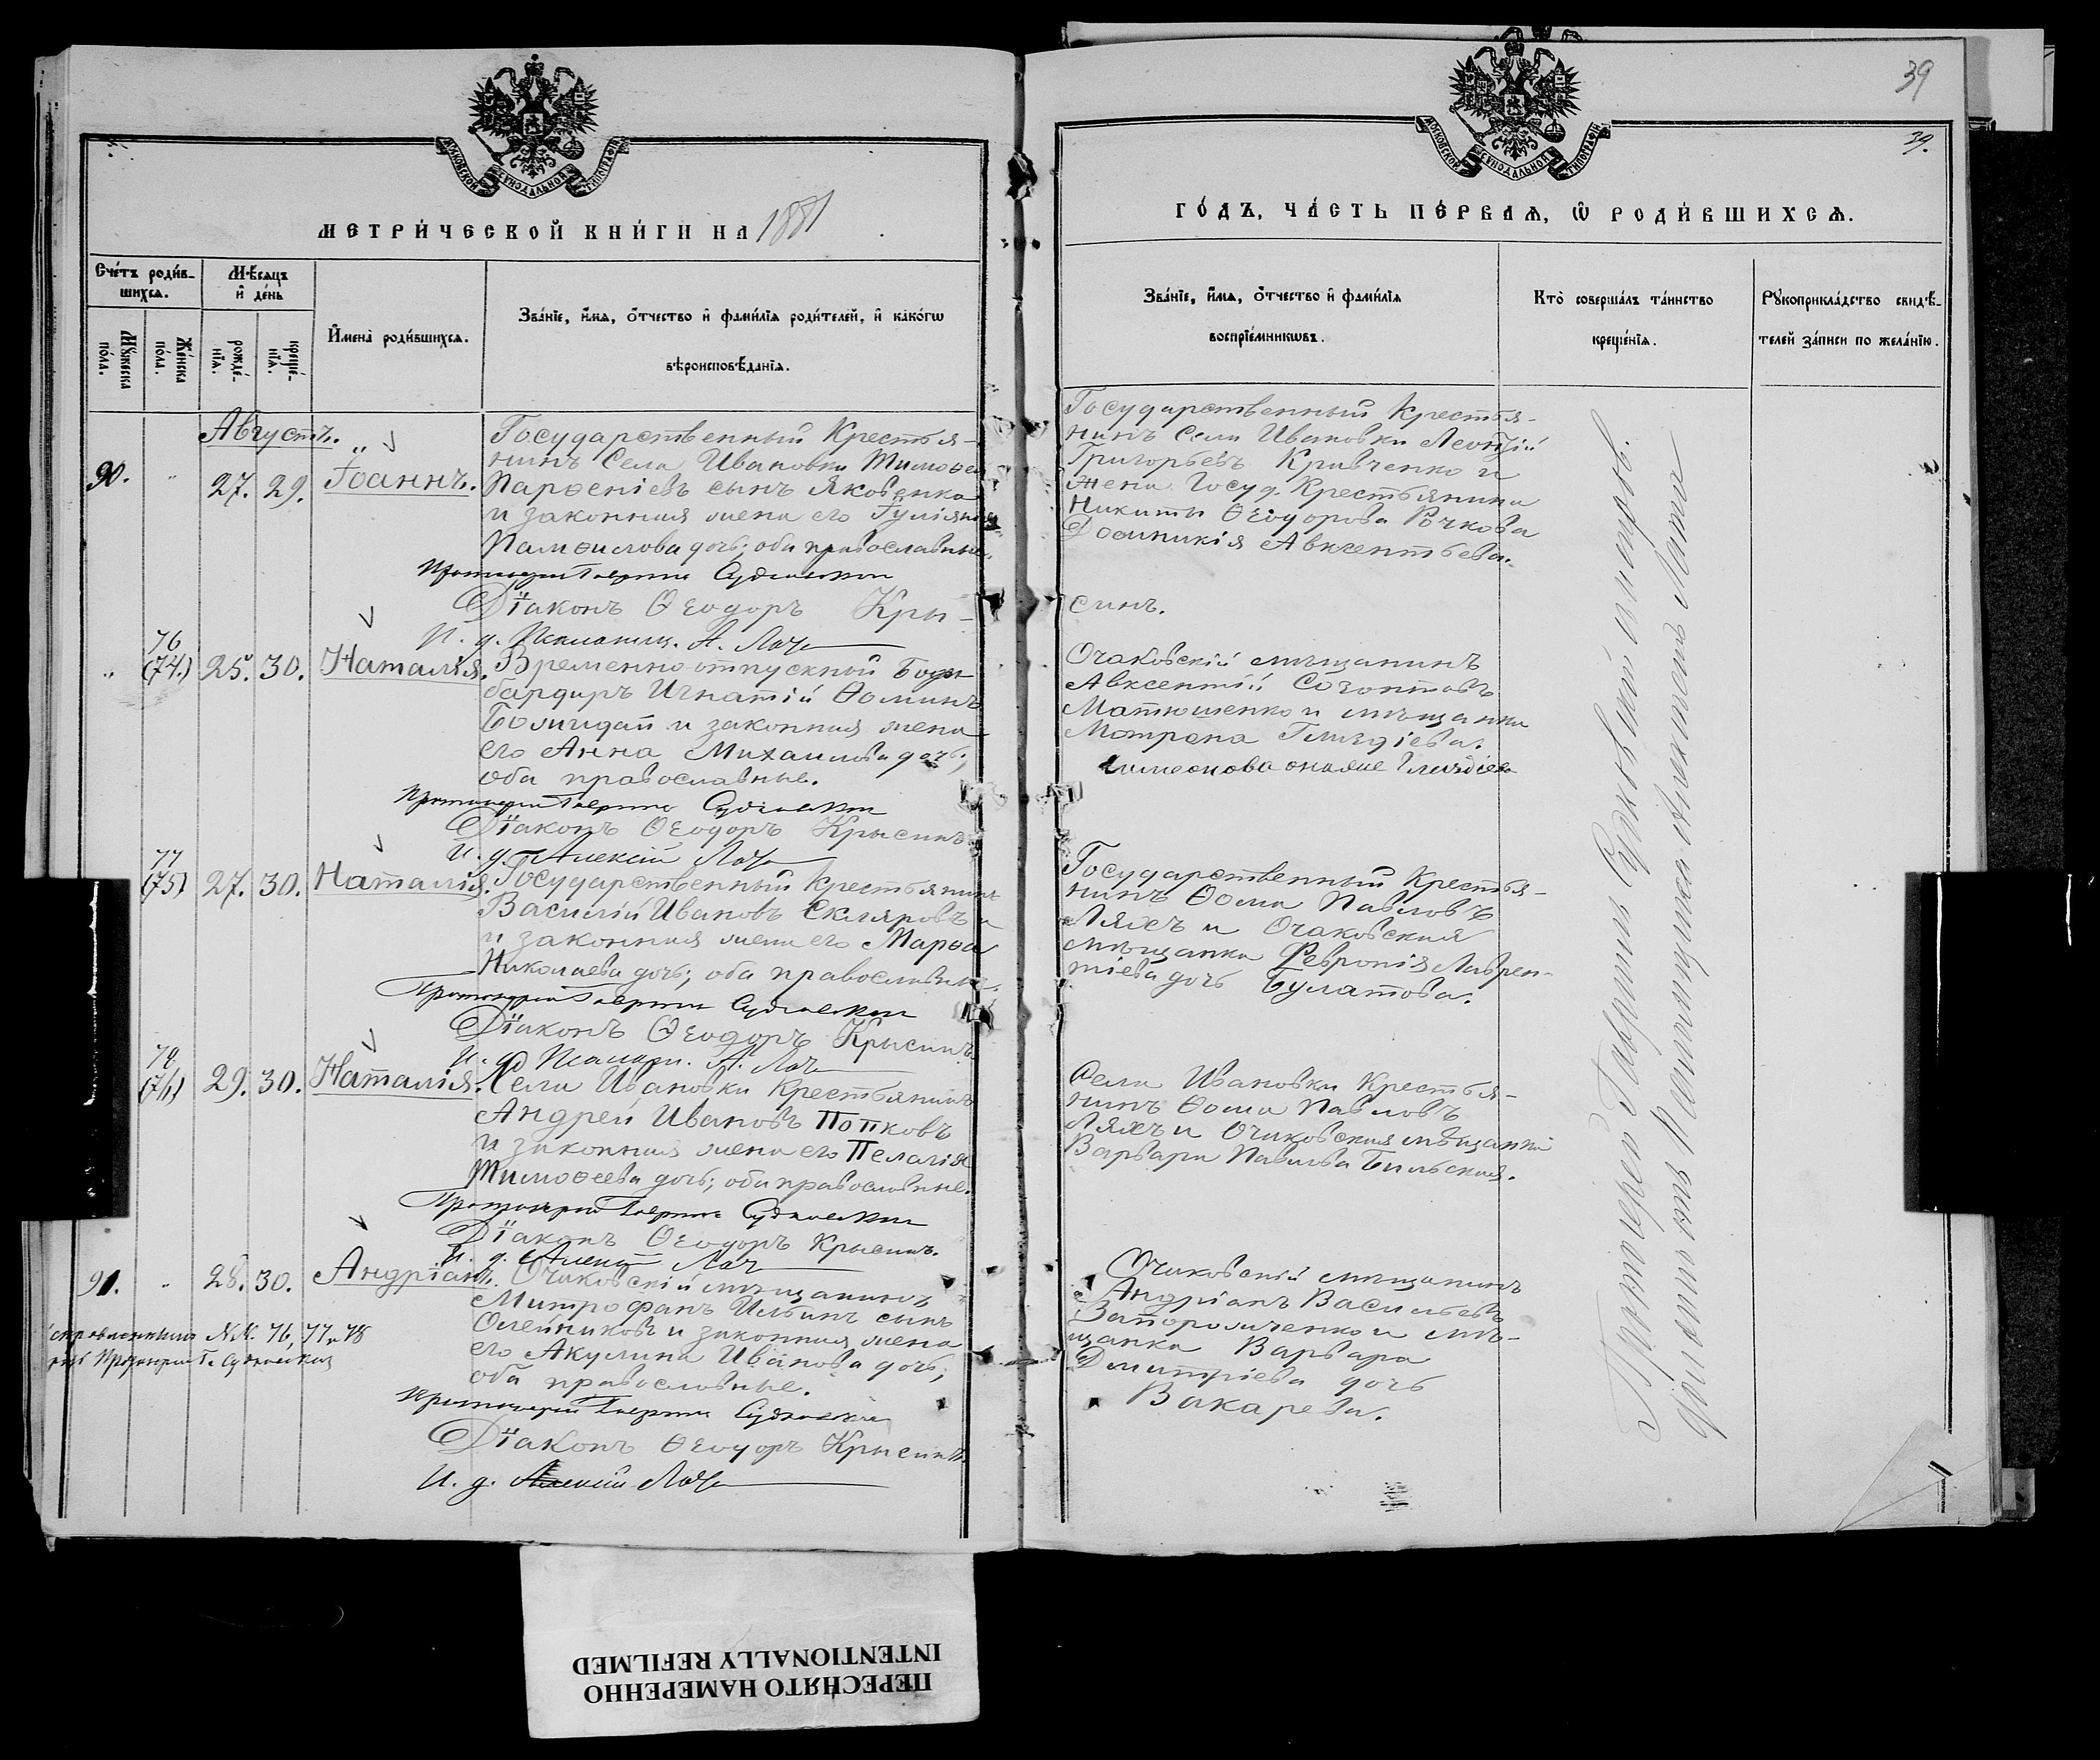 39
39.
МОСКОВСКОЙ СѴНОДАЛЬНОЙ ТИПОГРАФІИ
МОСКОВСКОЙ СѴНОДАЛЬНОЙ ТИПОГРАФІИ
МЕТРИ́ЧЕСКОЙ КНИ́ГИ НА 1881
ГО́ДЪ, ЧА́СТЬ ПЕ́РВАѦ, Ѡ РОДИ́ВШИХСѦ.
Сче́тъ роди́в-
шихсѧ.
Мꙋ́жеска
по́ла.
Же́нска
по́ла.
Мѣ́сѧцъ
и҆ де́нь
рожде́-
нїѧ.
креще́-
нїѧ.
И҆мена̀ роди́вшихсѧ.
Зва́нїе, и҆́мѧ, ѻ҆́тчество и҆ фами́лїѧ роди́телей, и҆ како́гѡ
вѣроисповѣ́данїѧ.
Зва́нїе, и҆́мѧ, ѻ҆́тчество и҆ фами́лїѧ
воспрїе́мникѡвъ.
Кто̀ соверша́лъ та́инство
креще́нїѧ.
Рꙋкоприкла́дство свидѣ́-
телей за́писи по жела́нїю.
Августъ.
90. " 27. 29. Іоаннъ.
Государственный Крестья-
нинъ Села Ивановки Тимоѳей
Парѳеніевъ сынъ Яковенко
и законная жена его Іуліянія
дочь; оба православные.
Протоіерей Гавріилъ Судковскій
Діаконъ Ѳеодоръ Кры-
И. д. Псаломщ. А. Лата
Государственный Крестья-
нинъ Села Ивановки Леонтій
Григорьевъ Кривченко и
жена Госуд. Крестьянина
Никиты Ѳеодорова Рычкова
Домникія Авксентьева.
синъ.
" 76 (74.) 25. 30. Наталія.
Временно-отпускный Бом-
бардиръ Игнатій Ѳоминъ
и законная жена
его Анна Михаилова дочь;
оба православные.
Протоіерей Гавріилъ Судковскій
Діаконъ Ѳеодоръ Крысинъ.
И. д. Алексій Лата
Очаковскій мѣщанинъ
Авксентій Созонтовъ
Матюшенко и мѣщанка
Мотрона
77 (75) 27. 30. Наталія.
Государственный Крестьянинъ
Василій Ивановъ Скляровъ
и законная жена его Марѳа
Николаева дочь; оба православные.
Протоіерей Гавріилъ Судковскій
Діаконъ Ѳеодоръ Крысинъ.
И. д. Псаломщ. А. Лата
Государственный Крестья-
нинъ Ѳома Павловъ
Ляхъ и Очаковская
мѣщанка Февронія Лаврен-
тіева дочь Булатова.
78 (76) 29. 30. Наталія.
Села Ивановки Крестьянинъ
Андрей Ивановъ Попковъ
и законная жена его Пелагія
Тимоѳеева дочь; оба православные.
Протоіерей Гавріилъ Судковскій
Діаконъ Ѳеодоръ Крысинъ.
И. д. Алексій Лата
Села Ивановки Крестья-
нинъ Ѳома Павловъ
Ляхъ и Очаковская мѣщанка
Варвара Павлова Бильская.
91. " 28. 30. Андріанъ.
Очаковскій мѣщанинъ
Митрофанъ Ильинъ сынъ
Олейниковъ и законная жена
его Акулина Иванова дочь;
оба православные.
Протоіерей Гавріилъ Судковскій
Діаконъ Ѳеодоръ Крысинъ.
И. д. Алексій Лата
Очаковскій мѣщанинъ
Андріанъ Васильевъ
Запорожченко и мѣ-
щанка Варвара
Дмитріева дочь
Вакарева.
NN. 76, 77 и 78
Протоіерей Г. Судковскій
Протоіерей Гавріилъ Судковскій
Алексѣемъ Лата
ПЕРЕСНЯТО НАМЕРЕННО
INTENTIONALLY REFILMED